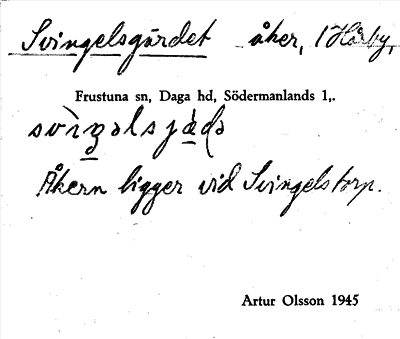 Svingelsgärdet åker, 1 Hörby,
Frustuna sn, Daga hd, Södermanlands l,.
Åkern ligger vid Svingelstorp.
Artur Olsson 1945